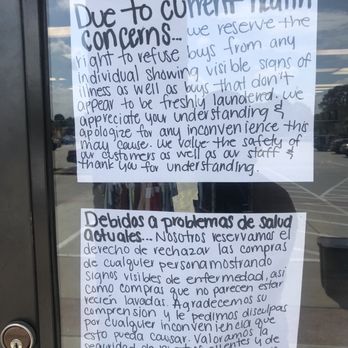 Due to current health
concerns... we reserve the
right to refuse buys from any
individual showing visible signs of
illness as well as buys that don't
appear to be freshly laundered. We
appreciate your understanding &
apologize for any inconvenience this
may cause. We value the safety of
our customers as well as our staff &
thank you for understanding.
Debidos a problemas de salud
actuales... Nosotros reservamos el
derecho de rechazar las compras
de cualquier persona mostrando
signos visibles de enfermedad, asi
como compras que no parecen estar
recien lavadas. Agradecemos su
comprension y le pedimos disculpas
por cualquier inconveniencia que
esto pueda causar. Valoramos la
seguridad de clientes y de